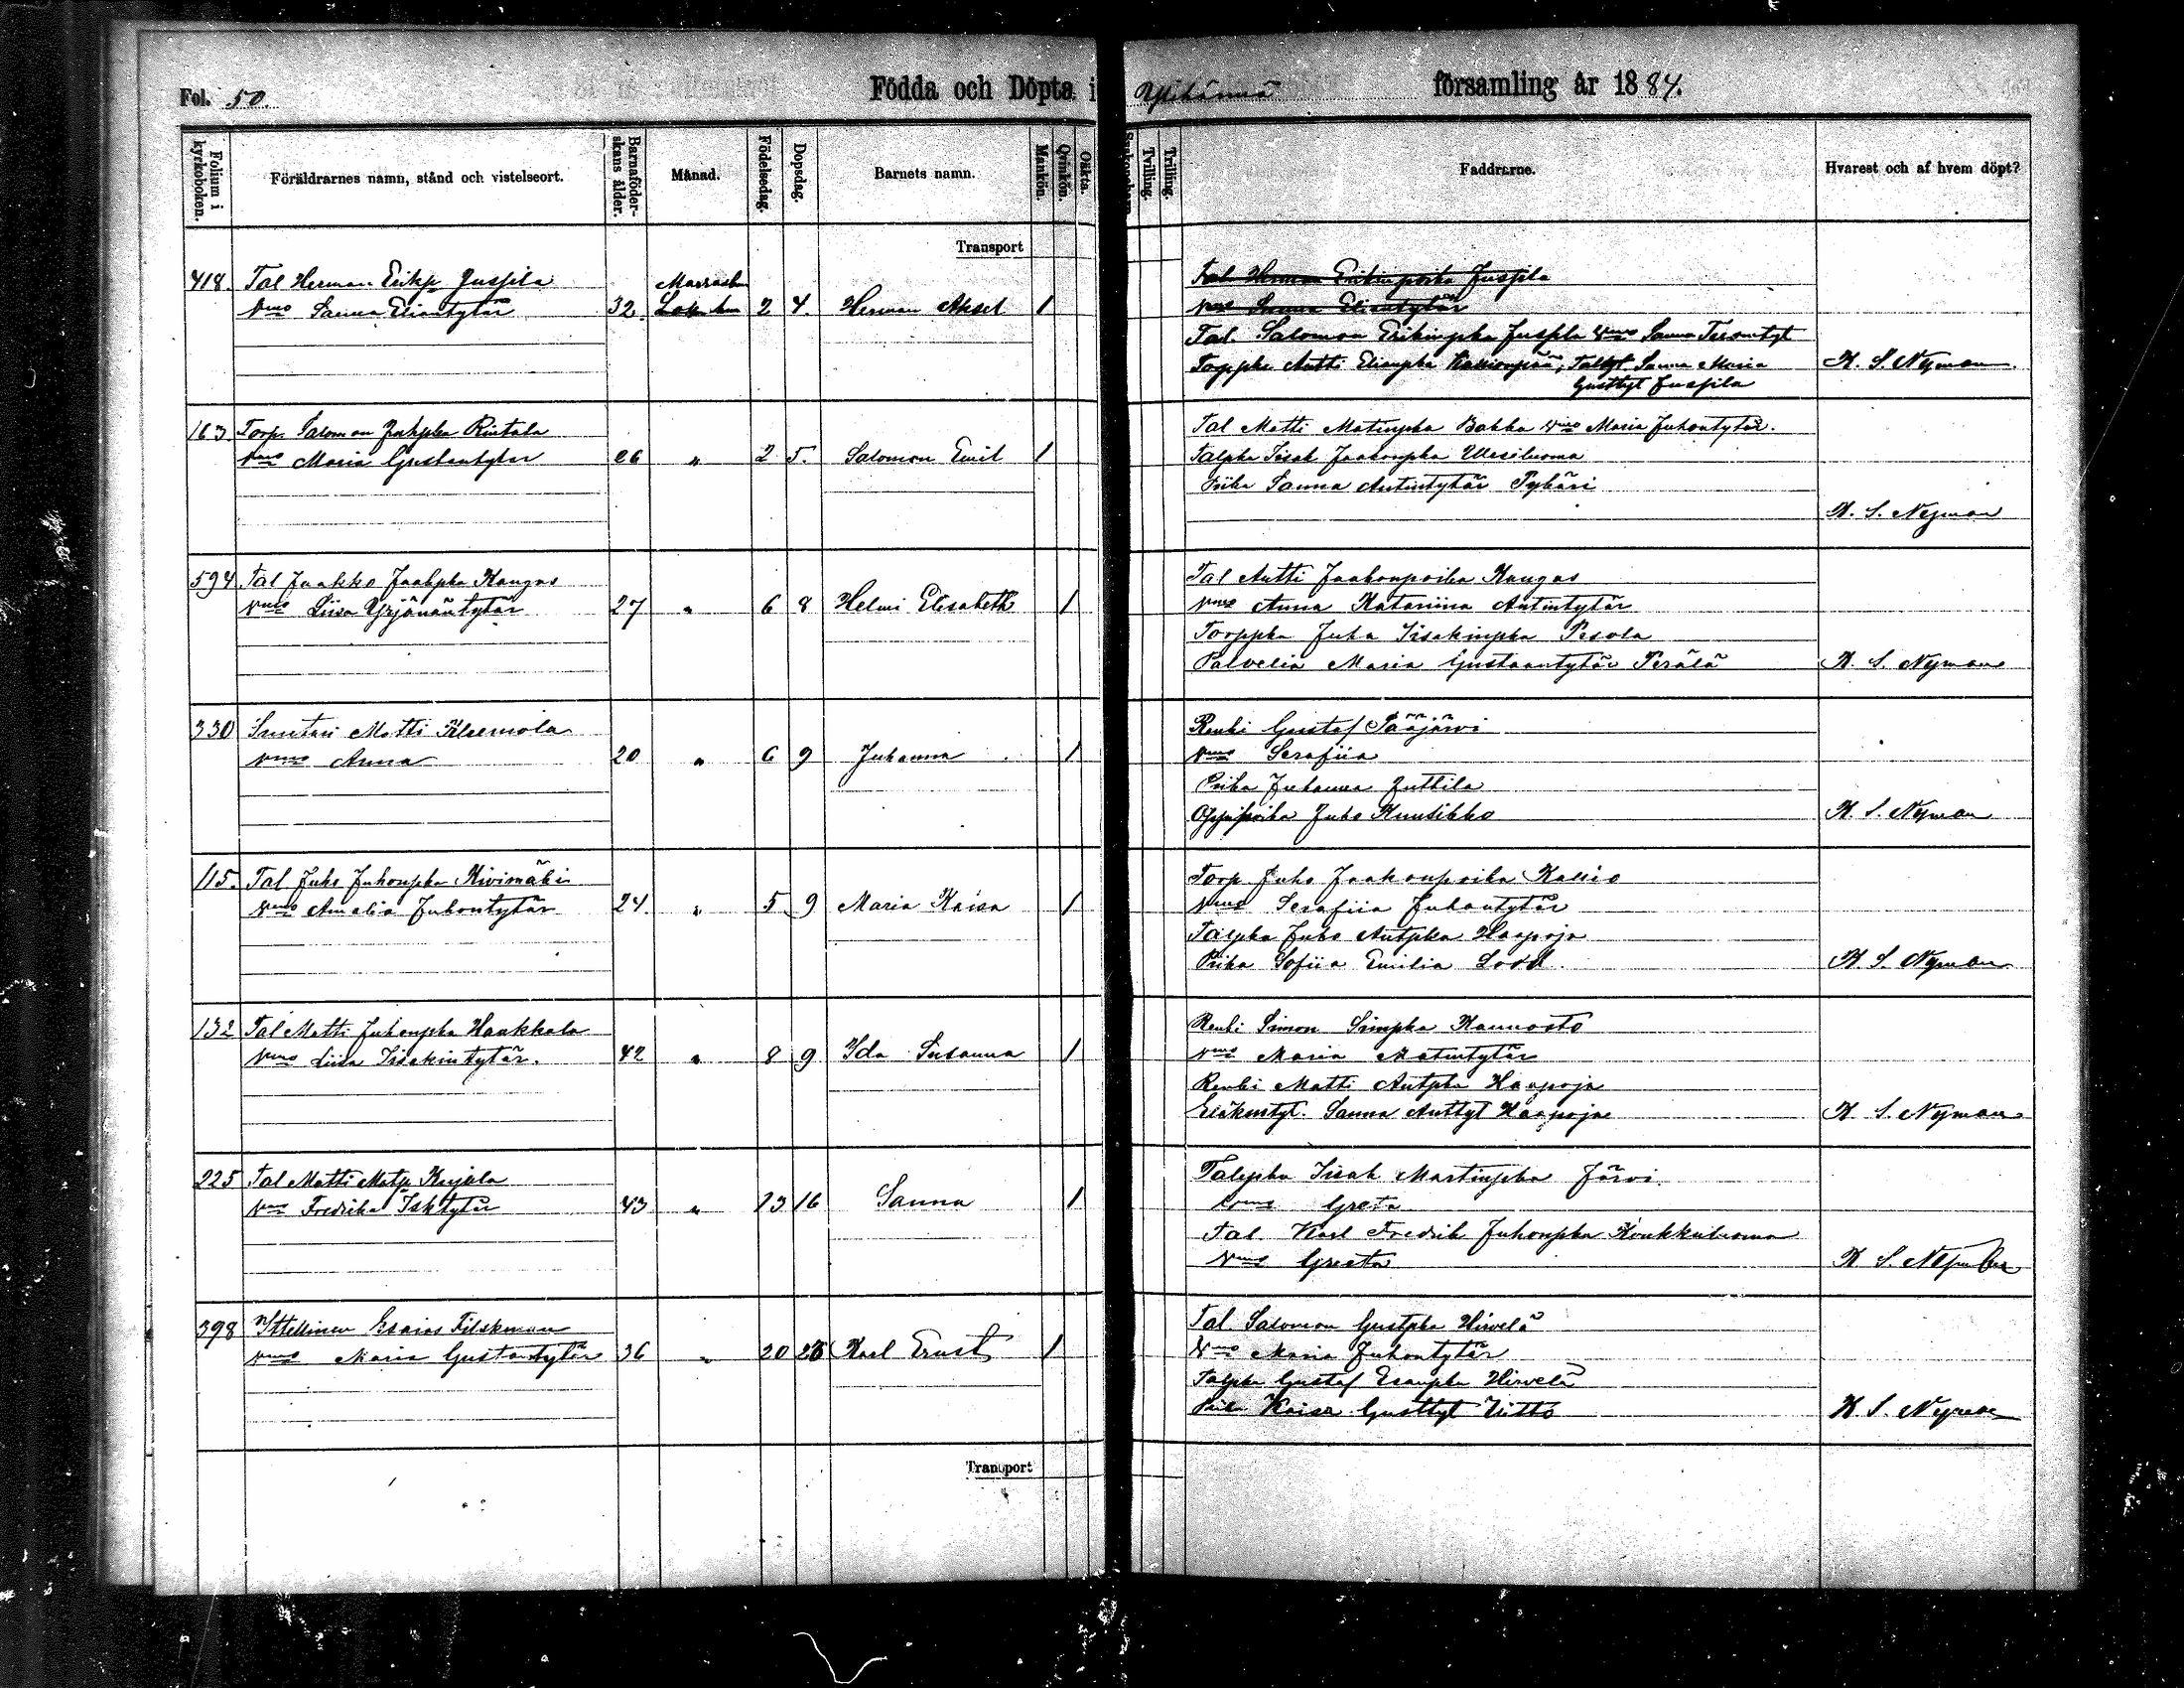 Fol. 50.
Födda och Döpta i Ylihärmä församling år 1884.
Folium i kyrkoboken.
Föräldrarnes namn, stånd och vistelseort.
Barnaföderskans ålder.
Månad.
Födelsedag.
Dopsdag.
Barnets namn.
Mankön.
Qvinkön.
Oäkta.
Tvilling.
Trilling.
Faddrarne.
Hvarest och af hvem döpt?
Transport
418. Tal Herman Erikp Jussila
Vmo Sanna Eliantytär 32. Marraskuu 2 4. Herman Aksel 1
Tal Herman Erikinpoika Jussila
Vmo Sanna Eliantytär
Tal. Salomon Erikinpka Jussila Vmo Sanna
Torppka Antti Elianpka Kallionpää, Taltyt Sanna Maria K. S. Nyman
Gusttyt Jussila
163 Torp. Salomon Rintala
Vmo Maria Gustantytär 26 " 2 5. Salomon Emil 1
Tal Matti Matinpka Vmo Maria Juhontytär.
Talpka Iisak Jaakonpka
Piika Sanna Antintytär
K. S. Nyman
594 Tal Jaakko Jaakpka Kangas
Vmo Liisa Yrjänäntytär 27 " 6 8 Helmi Elisabeth 1
Tal Antti Jaakonpoika Kangas
Vmo Anna Katariina Antintytär
Torppka Juha Iisakinpka Pesola
Palvelia Maria Gustaantytär Perälä K. S. Nyman
330 Suutari Matti Kleemola
Vmo Anna 20 " 6 9 Juhanna 1
Renki Gustaf Pääjärvi
Vmo Serafiia
Piika Juhanna Juttila
Oppipoika Juho Kuusikko K. S. Nyman
115. Tal Juho Juhonpka Kivimäki
Vmo Amalia Juhontytär 24. " 5 9 Maria Kaisa 1
Torp Juho Jaakonpoika Kallio
Vmo Serafiia Juhontytär
Talpka Juho Antpka Haapoja
Piika Sofiia Emilia K. S. Nyman
132 Tal Matti Juhonpka Haukkala
Vmo Liisa Iisakintytär. 42 " 8 9 Ida Susanna 1
Renki Simon Simpka Kannosto
Vmo Maria Matintytär
Renki Matti Antpka Haapoja
Sanna Anttyt Haapoja K. S. Nyman
225 Tal Matti Matp Kujala
Vmo Fredrika Isktytär 43 " 13 16 Sanna 1
Talpka Iisak Martinpka Järvi.
Vmo Greta
Tal. Karl Fredrik Juhonpka
Vmo Greeta K. S. Nyman
398 Itsellinen Esaias Filskman
Vmo Maria Gustantytär 36 " 20 Karl Ernst 1
Tal. Salomon Gustpka Hirvelä
Vmo Maria Juhontytär
Talpka Gustaf Esanpka Hirvelä
Piika Kaisa Gusttyt K. S. Nyman
Transport